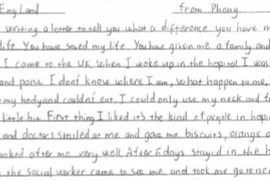 England from Phong
writing a letter to tell you what a difference you have m
life. You have saved my life. You have given me a family and
I came to the UK when I woke up in the hospital I was
and panic I don't know where I am, what happen to me,
my body and couldn't eat. I could only use my neck and f
little bit. First thing I liked it's the kind of people in hop
and doctors smiled at me and gave me biscuits, orange a
anked after me very well. After 6 days stayed in the h
the social worker came to see me and took me go to